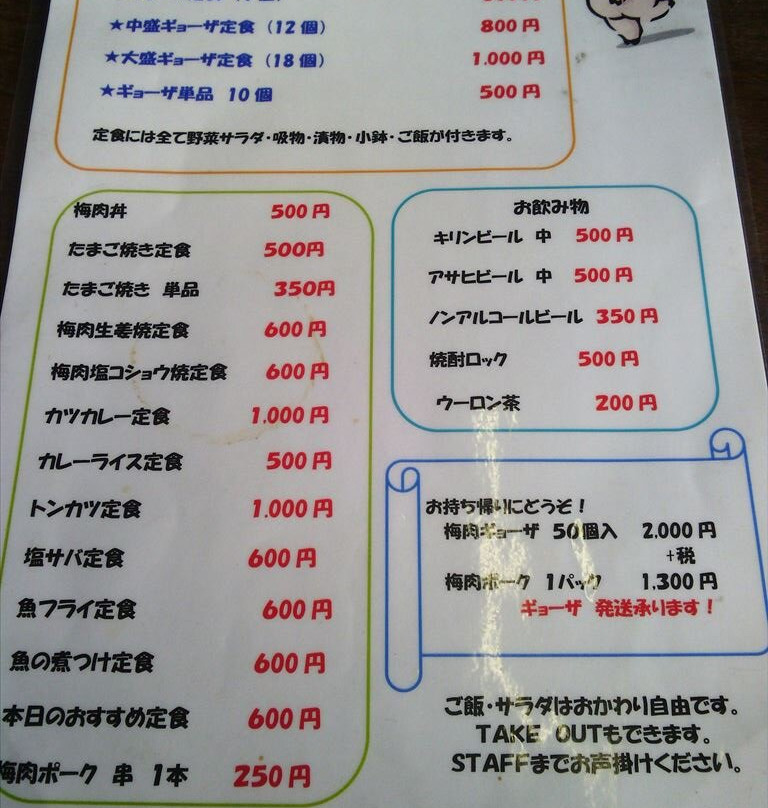 ★中盛ギョーザ定食（12個） 800円
★大盛ギョーザ定食（18個） 1.000円
★ギョーザ単品 10個 500円
定食には全て野菜サラダ・吸物・漬物・小鉢・ご飯が付きます。
梅肉丼 500円
たまご焼き定食 500円
たまご焼き 単品 350円
梅肉生姜焼定食 600円
梅肉塩コショウ焼定食 600円
カツカレー定食 1.000円
カレーライス定食 500円
トンカツ定食 1.000円
塩サバ定食 600円
魚フライ定食 600円
魚の煮つけ定食 600円
本日のおすすめ定食 600円
梅肉ポーク 串 1本 250円
お飲み物
キリンビール 中 500円
アサヒビール 中 500円
ノンアルコールビール 350円
焼酎ロック 500円
ウーロン茶 200円
お持ち帰りにどうぞ！
梅肉ギョーザ 50個入 2.000円
+税
梅肉ポーク 1パック 1.300円
ギョーザ 発送承ります！
ご飯・サラダはおかわり自由です。
TAKE OUTもできます。
STAFFまでお声掛けください。